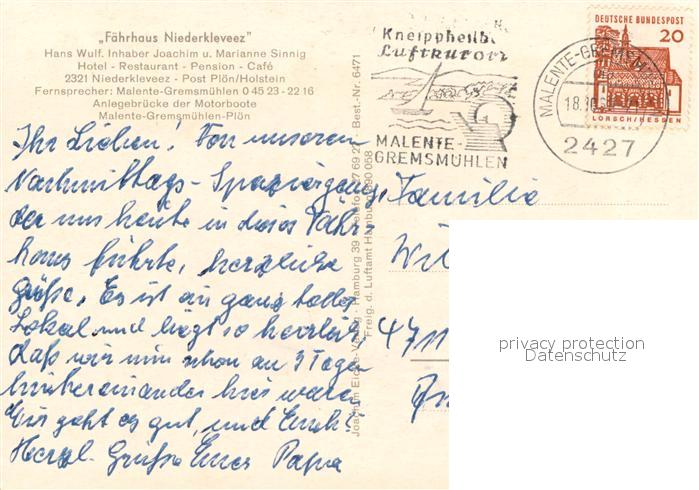 „Fährhaus Niederkleveez"
Hans Wulf. Inhaber Joachim u. Marianne Sinnig
Hotel - Restaurant - Pension - Café
2321 Niederkleveez - Post Plön/Holstein
Fernsprecher: Malente-Gremsmühlen 0 45 23 - 22 16
Anlegebrücke der Motorboote
Malente-Gremsmühlen-Plön
Ihr Lieben! Von unserem
Nachmittags-Spaziergang,
der uns heute in dieses Fähr-
haus führte, herzliche
Grüße. Es ist ein ganz tolles
Lokal und liegt so herrlich
daß wir nun schon an 3 Tagen
hintereinander hier waren
Uns geht es gut, und Euch?
Herzl. Grüße Euer Papa
Joachim Hamburg 39 Best.-Nr. 6471
Freig. d. Luftamt Hamburg
Kneippheilb
Luftkurort
MALENTE-
GREMSMÜHLEN
MALENTE-GREMSM
18.10
2427
DEUTSCHE BUNDESPOST
20
LORSCH/HESSEN
Familie
Wil
4711
privacy protection
Datenschutz